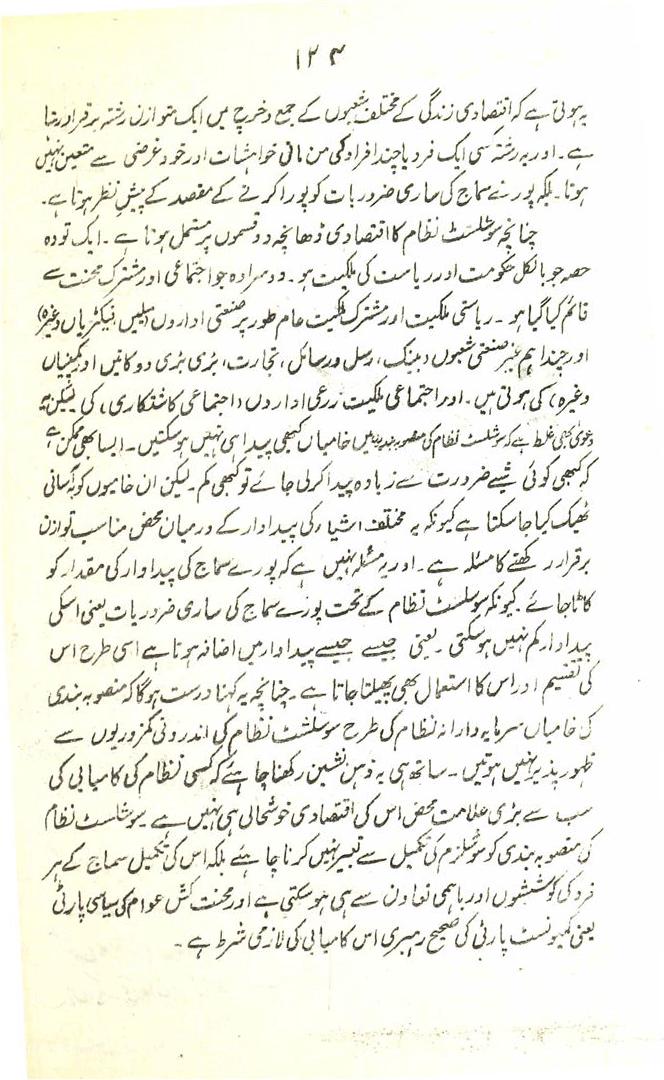 ۱۲۴
یہ ہوتی ہے کہ اقتصادی زندگی کے مختلف شعبوں کے جمع و خرچ میں ایک متوازن رشتہ برقرار رہتا
ہے ۔ اور یہ رشتہ کسی ایک فرد یا چند افراد کی من مانی خواہشات اور خود غرضی سے متعین نہیں
ہوتا ۔ بلکہ پورے سماج کی ساری ضروریات کو پورا کرنے کے مقصد کے پیشِ نظر ہوتا ہے ۔
چنانچہ سوشلسٹ نظام کا اقتصادی ڈھانچہ دو قسموں پر مشتمل ہوتا ہے ۔ ایک تو وہ
حصہ جو بالکل حکومت اور ریاست کی ملکیت ہو ۔ دوسرا وہ جو اجتماعی اور مشترک محنت سے
قائم کیا گیا ہو ۔ ریاستی ملکیت اور مشترک ملکیت عام طور پر صنعتی اداروں (ملیں، فیکٹریاں وغیرہ)
اور چند اہم غیر صنعتی شعبوں (بینک، رسل و رسائل، تجارت، بڑی بڑی دوکانیں اور کمپنیاں
وغیرہ) کی ہوتی ہیں ۔ اور اجتماعی ملکیت زرعی اداروں (اجتماعی کاشتکاری) کی لیکن یہ
دعویٰ بھی غلط ہے کہ سوشلسٹ نظام کی منصوبہ بندی میں خامیاں کبھی پیدا ہی نہیں ہوسکتیں ۔ ایسا بھی ممکن ہے
کہ کبھی کوئی شے ضرورت سے زیادہ پیدا کرلی جائے تو کبھی کم ۔ لیکن ان خامیوں کو بآسانی
ٹھیک کیا جاسکتا ہے کیونکہ یہ مختلف اشیاء کی پیداوار کے درمیان محض مناسب توازن
برقرار رکھنے کا مسئلہ ہے ۔ اور یہ مسئلہ نہیں ہے کہ پورے سماج کی پیداوار کی مقدار کو
کاٹا جائے کیونکہ سوشلسٹ نظام کے تحت پورے سماج کی ساری ضروریات یعنی اسکی
پیداوار کم نہیں ہوسکتی ۔ یعنی جیسے جیسے پیداوار میں اضافہ ہوتا ہے اسی طرح اس
کی تقسیم اور اس کا استعمال بھی پھیلتا جاتا ہے ۔ چنانچہ یہ کہنا درست ہوگا کہ منصوبہ بندی
کی خامیاں سرمایہ دارانہ نظام کی طرح سوشلسٹ نظام کی اندرونی کمزوریوں سے
ظہور پذیر نہیں ہوتیں ۔ ساتھ ہی یہ ذہن نشین رکھنا چاہئے کہ کسی نظام کی کامیابی کی
سب سے بڑی علامت محض اس کی اقتصادی خوشحالی ہی نہیں ہے سوشلسٹ نظام
کی منصوبہ بندی کو سوشلزم کی تکمیل سے تعبیر نہیں کرنا چاہئے بلکہ اس کی تکمیل سماج کے ہر
فرد کی کوششوں اور باہمی تعاون سے ہی ہوسکتی ہے اور محنت کش عوام کی سیاسی پارٹی
یعنی کمیونسٹ پارٹی کی صحیح رہبری اس کامیابی کی لازمی شرط ہے ۔